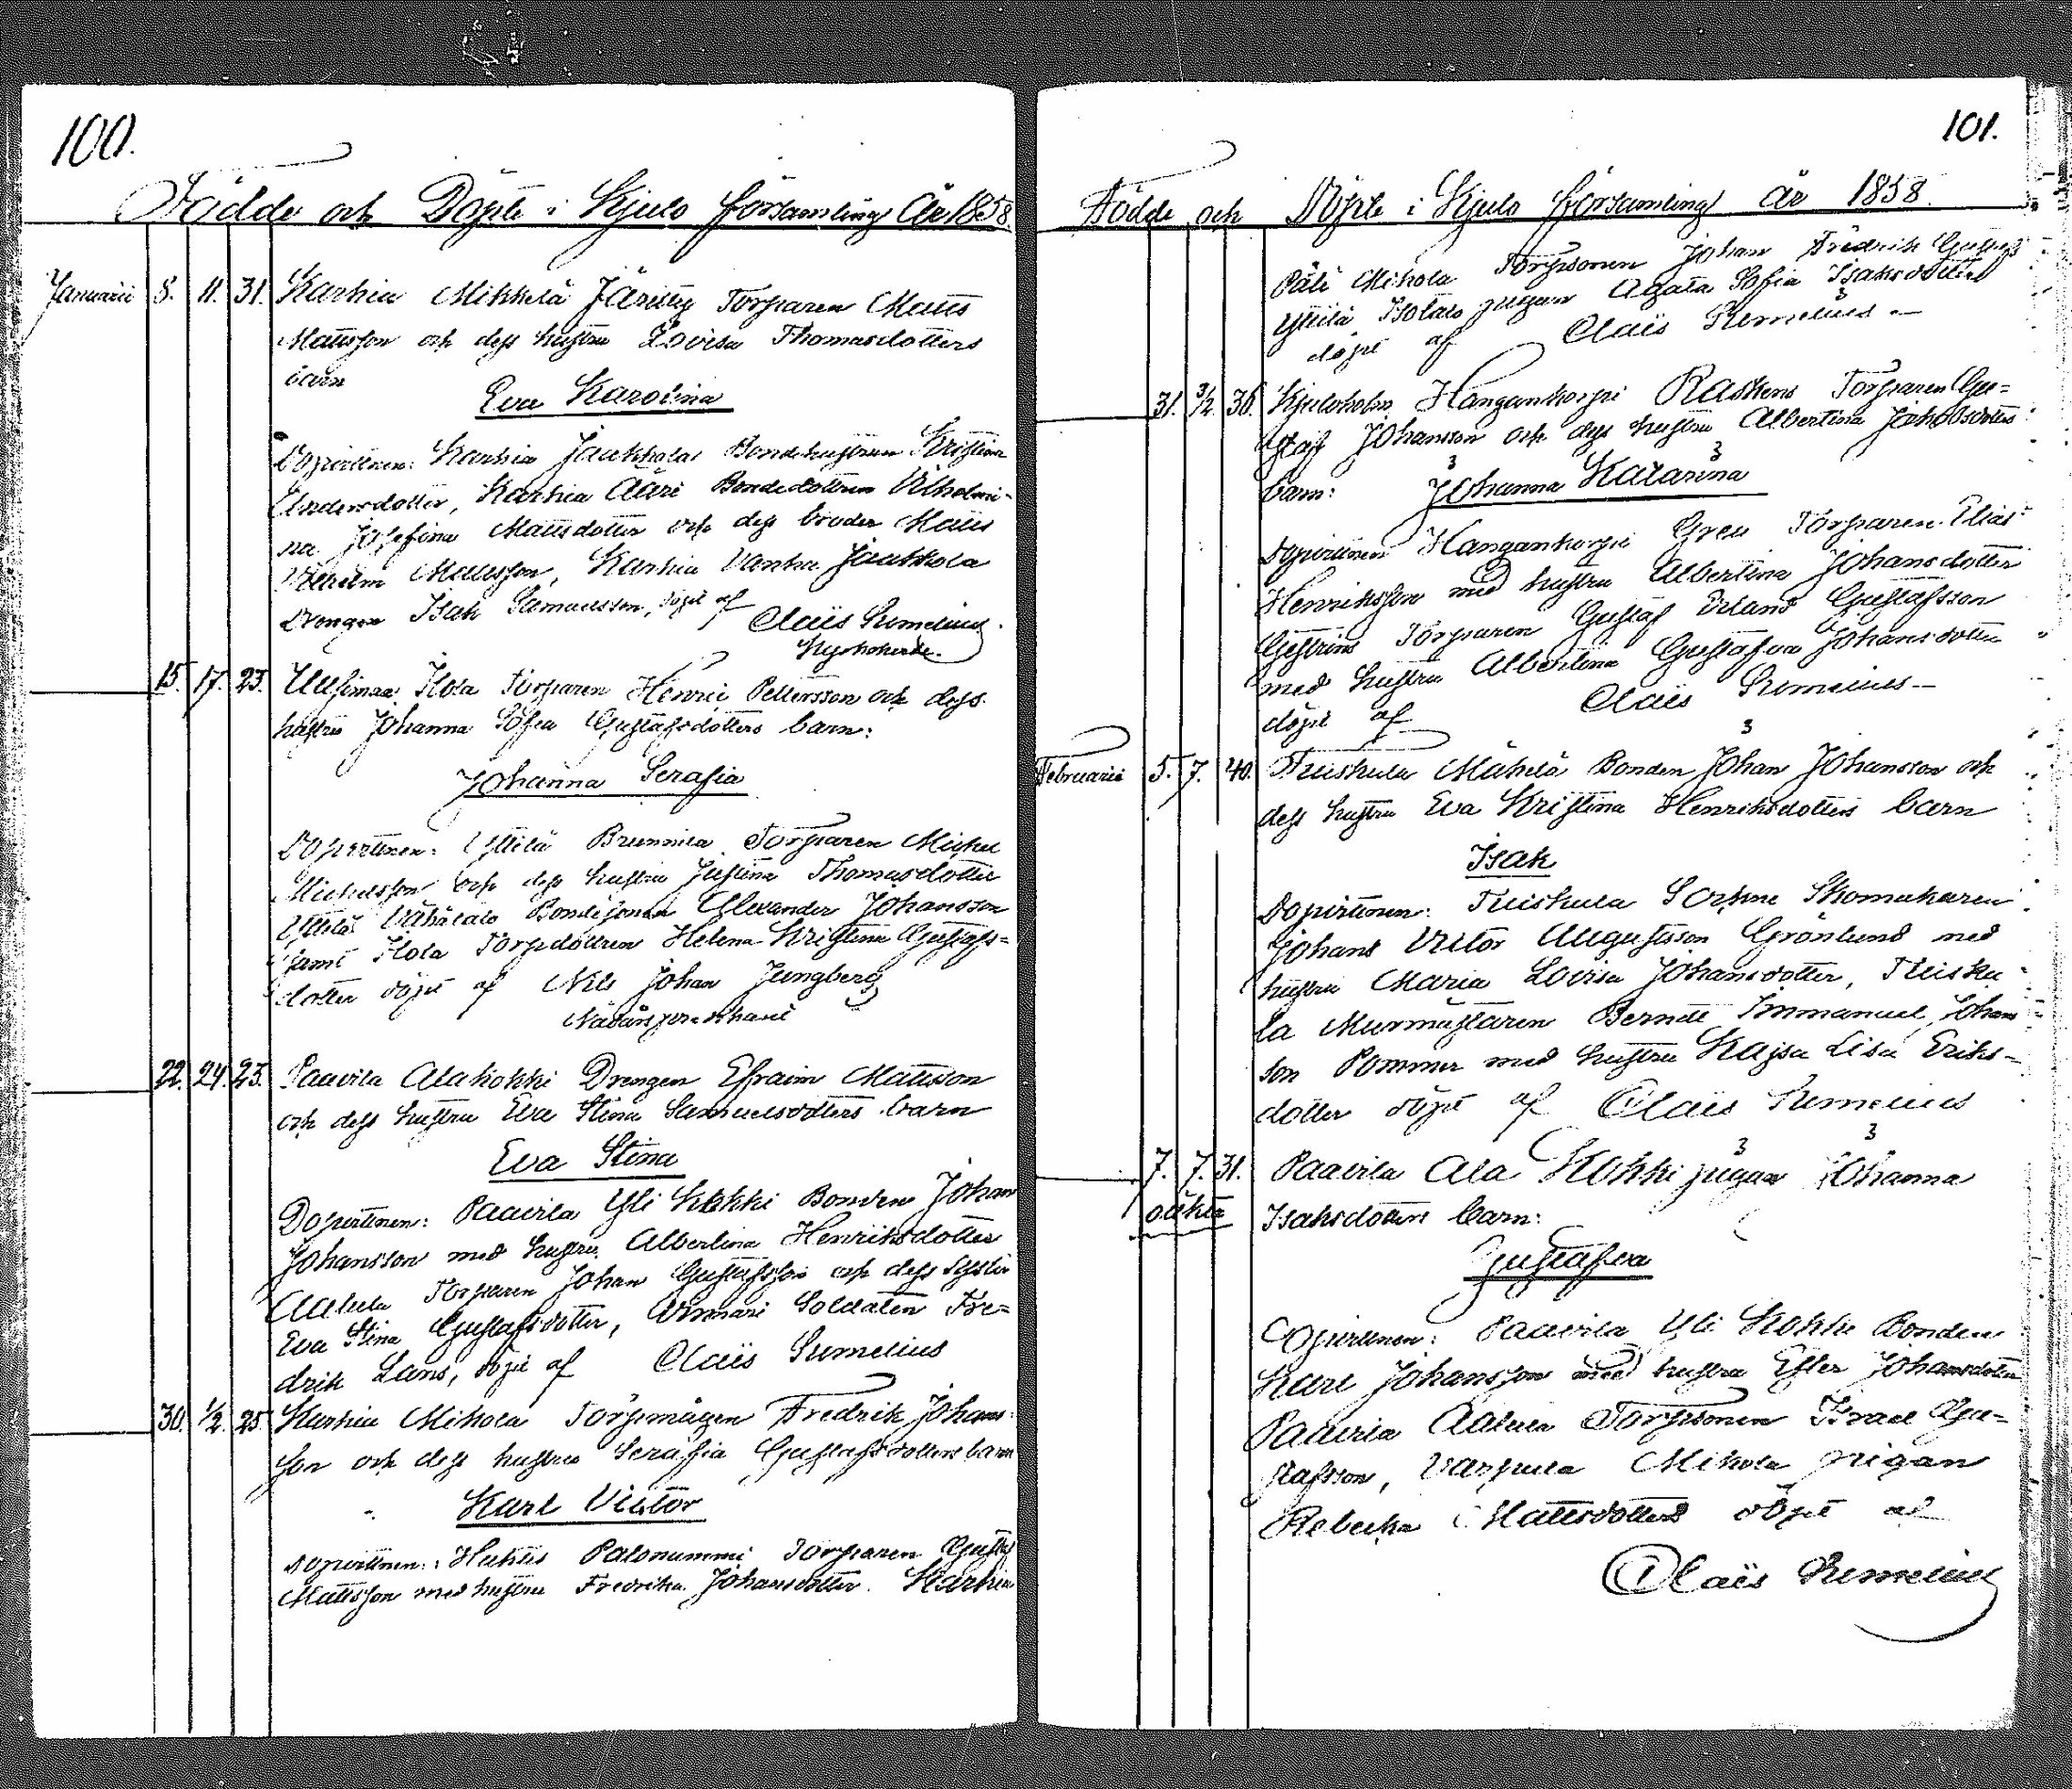 100.
Födde och Döpte i Kjulo församling År 1858.
Januarii 8. 11. 31. Karhia Mikkelä Torparen Matts
Mattsson och dess hustru Lovisa Thomasdotters
barn
Eva Karolina
Dopvittnen: Karhia Jaakkolas Bondehustrun Kristina
Andersdotter, Karhia Bondedottren Vilhelmi-
na Josefina Mattsdotter och dess broder Matts
Vilhelm Mattsson, Karhia Vanha Jaakkola
Drengen Isak Samuelsson, döpt af Claës Sumelius.
Kyrkoherde.
15. 17. 23. Uusimaa Ilola Torparen Henric Pettersson och dess
hustru Johanna Sofia Gustafsdotters barn:
Johanna Serafia
Dopvittnen: Yttilä Brunnila Torparen Michel
Michelsson och dess hustru Justina Thomasdotter
Yttilä Bondesonen Alexander Johansson
samt Ilola Torpdottren Helena Kristina Gustafs-
dotter döpt af Nils Johan Jungberg
Nådårspredikant
22. 24. 23. Paavila Alakokki Drengen Efraim Mattsson
och dess hustru Eva Stina Samuelsdotters barn
Eva Stina
Dopvittnen: Paavila Yli Kokki Bonden Johan
Johansson med hustru Albertina Henriksdotter
Torparen Johan Gustafsson och dess syster
Eva Stina Gustafsdotter, Soldaten Fre-
drik Lans, döpt af Claës Sumelius
30. 1/2. 25. Karhia Mikola Torpmågen Fredrik Johans-
son och dess hustru Serafia Gustafsdotters barn
Karl Victor
Dopvittnen: Palonummi Torparen Gustaf
Mattsson med hustru Fredrika Johansdotter. Karhia
101.
Födde och Döpte i Kjulo församling År 1858.
Mikola Torpsonen Johan Fredrik
Yttilä pigan Agata Sofia Isaksdotter
döpt af Claës Sumelius
31. 3/2. 36. Kjuloholm Hangankorpi Raskens Torparen Gu-
staf Johansson och dess hustru Albertina Jakobsdotters
barn: Johanna Katarina
Dopvittnen Hangankorpi Torparen Elias
Henriksson med hustru Albertina Johansdotter
Torparen Gustaf Erland Gustafsson
med hustru Albertina Gustafva Johansdotter
döpt af Claës Sumelius
Februarii 5. 7. 40. Tuiskula Mäkelä Bonden Johan Johansson och
dess hustru Eva Kristina Henriksdotters barn
Isak
Dopvittnen: Tuiskula Skomakaren
Johan Victor Augustsson Grönlund med
hustru Maria Lovisa Johansdotter, Tuisku-
la Murmästaren Berndt Immanuel Johans
son Pommer med hustru Kajsa Lisa Eriks-
dotter döpt af Claës Sumelius
7. 7. 31. Paavila Ala Kokki pigan Johanna
oäkta Isaksdotters barn:
Gustafva
Dopvittnen: Paavila Yli Kokki Bonden
Karl Johansson med hustru Ester Johansdotter
Paavila Torpsonen Israel Gu-
stafsson, Mikola pigan
Rebecka Mattsdotter döpt af
Claës Sumelius